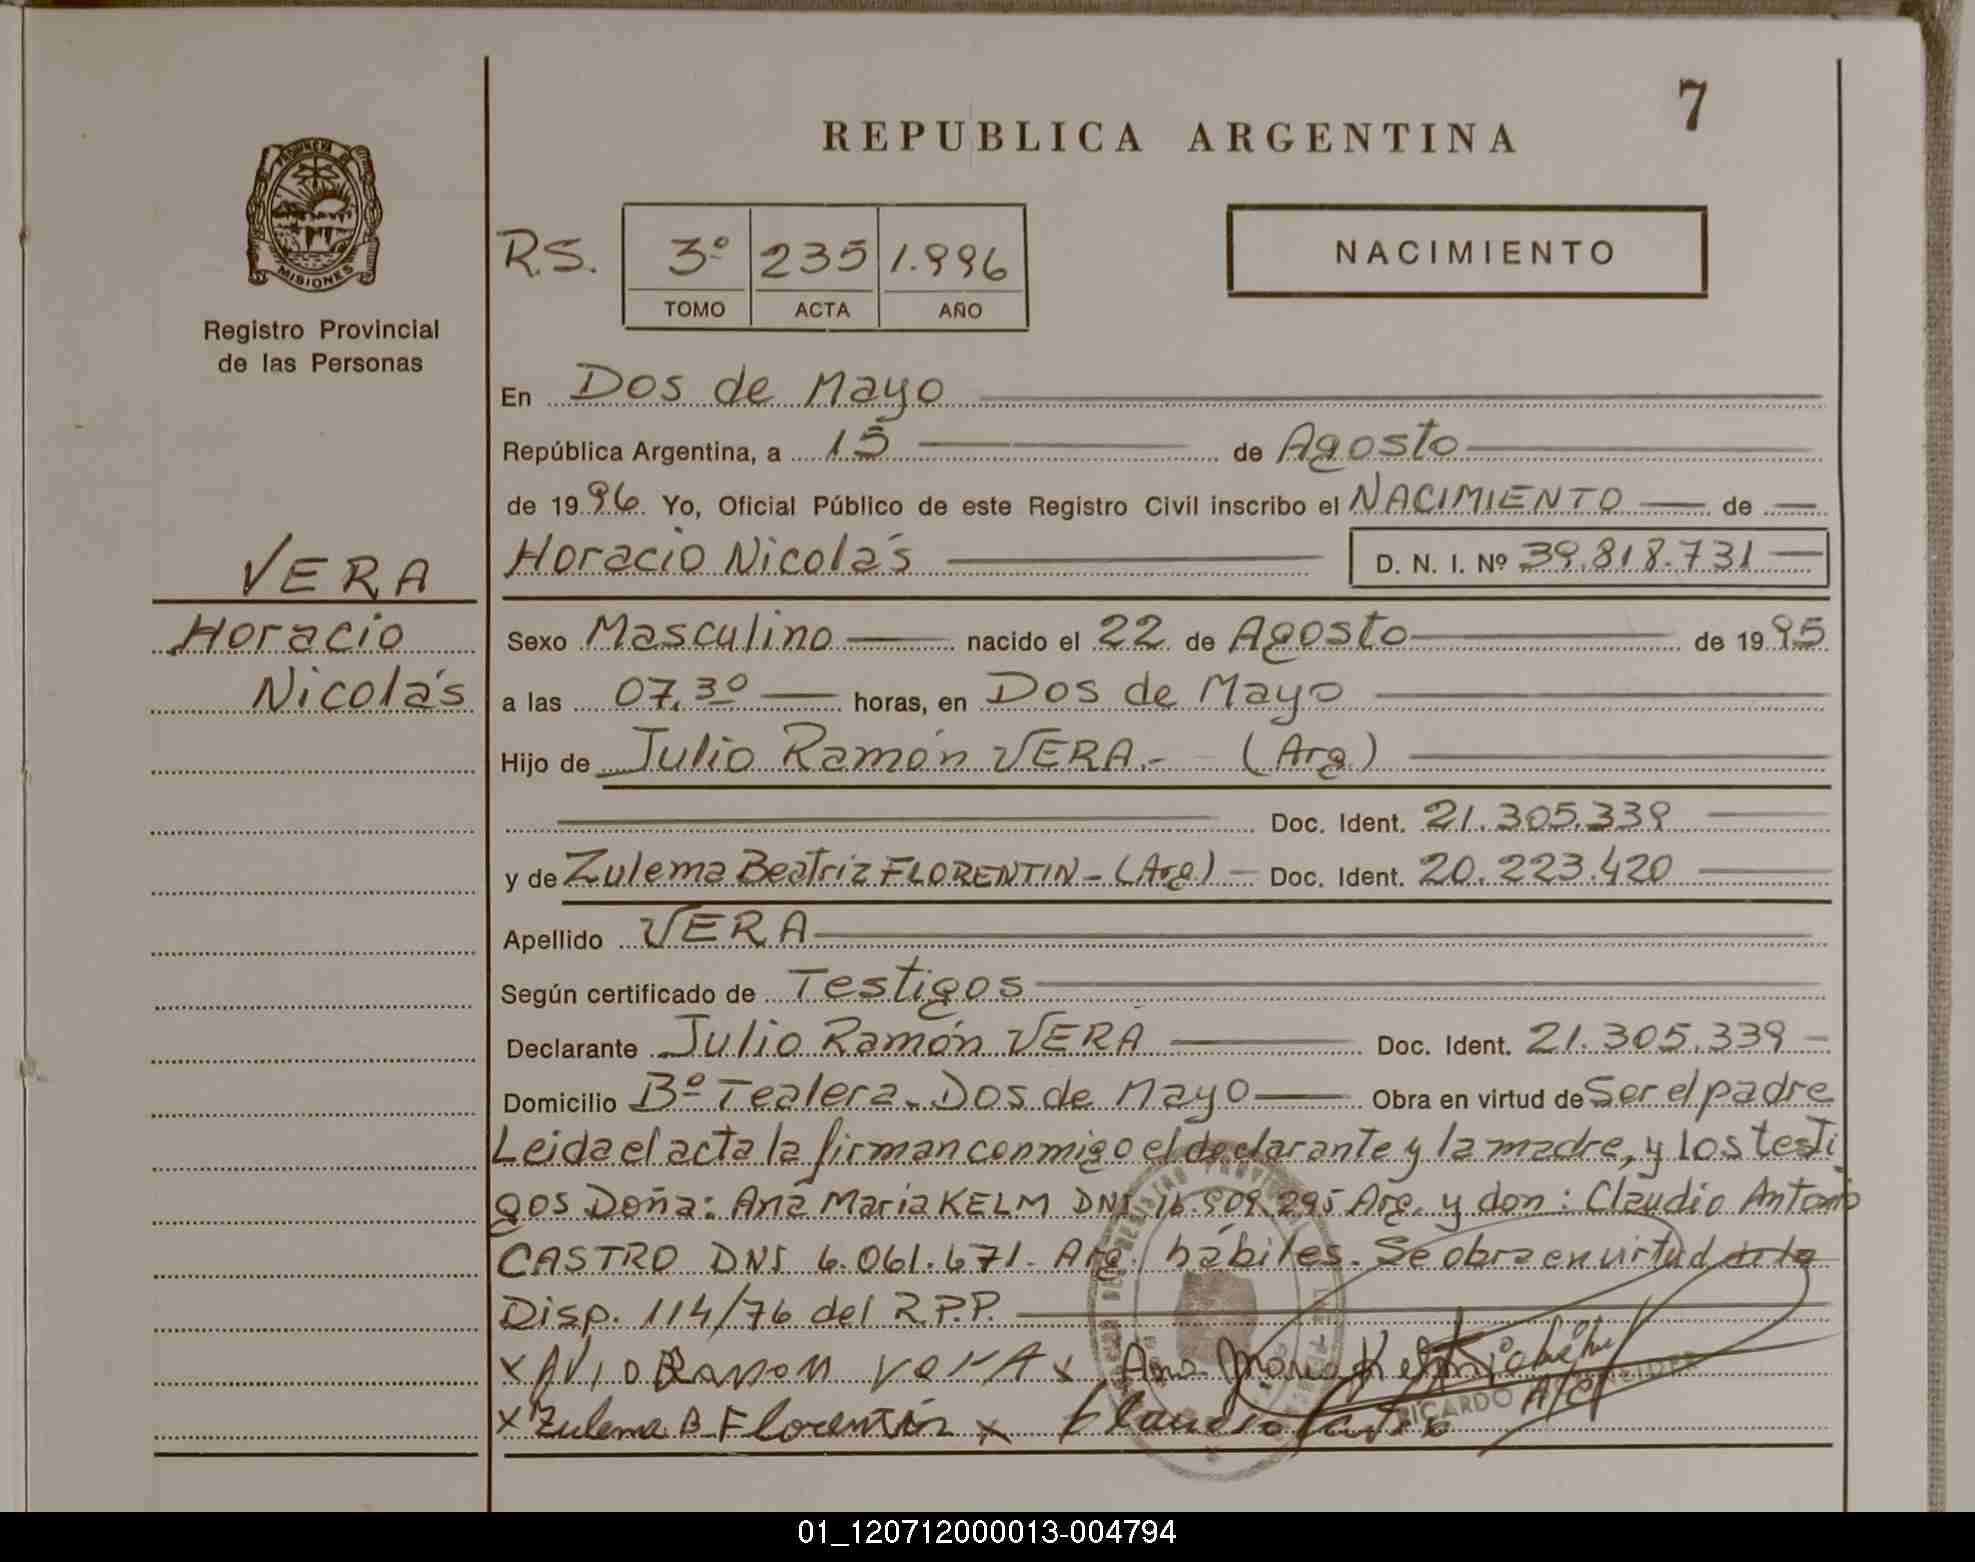 7
REPUBLICA ARGENTINA
PROVINCIA DE
MISIONES
Registro Provincial
de las Personas
R.S. 3º 235 1.996
TOMO ACTA AÑO
NACIMIENTO
En Dos de Mayo
República Argentina, a 15 de Agosto
de 1996 Yo, Oficial Público de este Registro Civil inscribo el NACIMIENTO de
Horacio Nicolás D. N. I. Nº 39.818.731
VERA
Horacio
Nicolás
Sexo Masculino nacido el 22 de Agosto de 1995
a las 07,30 horas, en Dos de Mayo
Hijo de Julio Ramón VERA.- (Arg.)
Doc. Ident. 21.305.339
y de Zulema Beatriz FLORENTIN - (Arg.) - Doc. Ident. 20.223.420
Apellido VERA
Según certificado de Testigos
Declarante Julio Ramón VERA Doc. Ident. 21.305.339
Domicilio Bº Tealera. Dos de Mayo Obra en virtud de Ser el padre
Leida el acta la firman conmigo el declarante y la madre, y los testi
gos Doña: Ana Maria KELM DNI 16.909.295 Arg. y don: Claudio Antonio
CASTRO DNI 6.061.671. Arg. hábiles. Se obra en virtud de la
Disp. 114/76 del R.P.P.
x Julio Ramon VerA x Ana Maria Kelm
x Zulema B Florentín x Claudio Castro
RICARDO
01_120712000013-004794